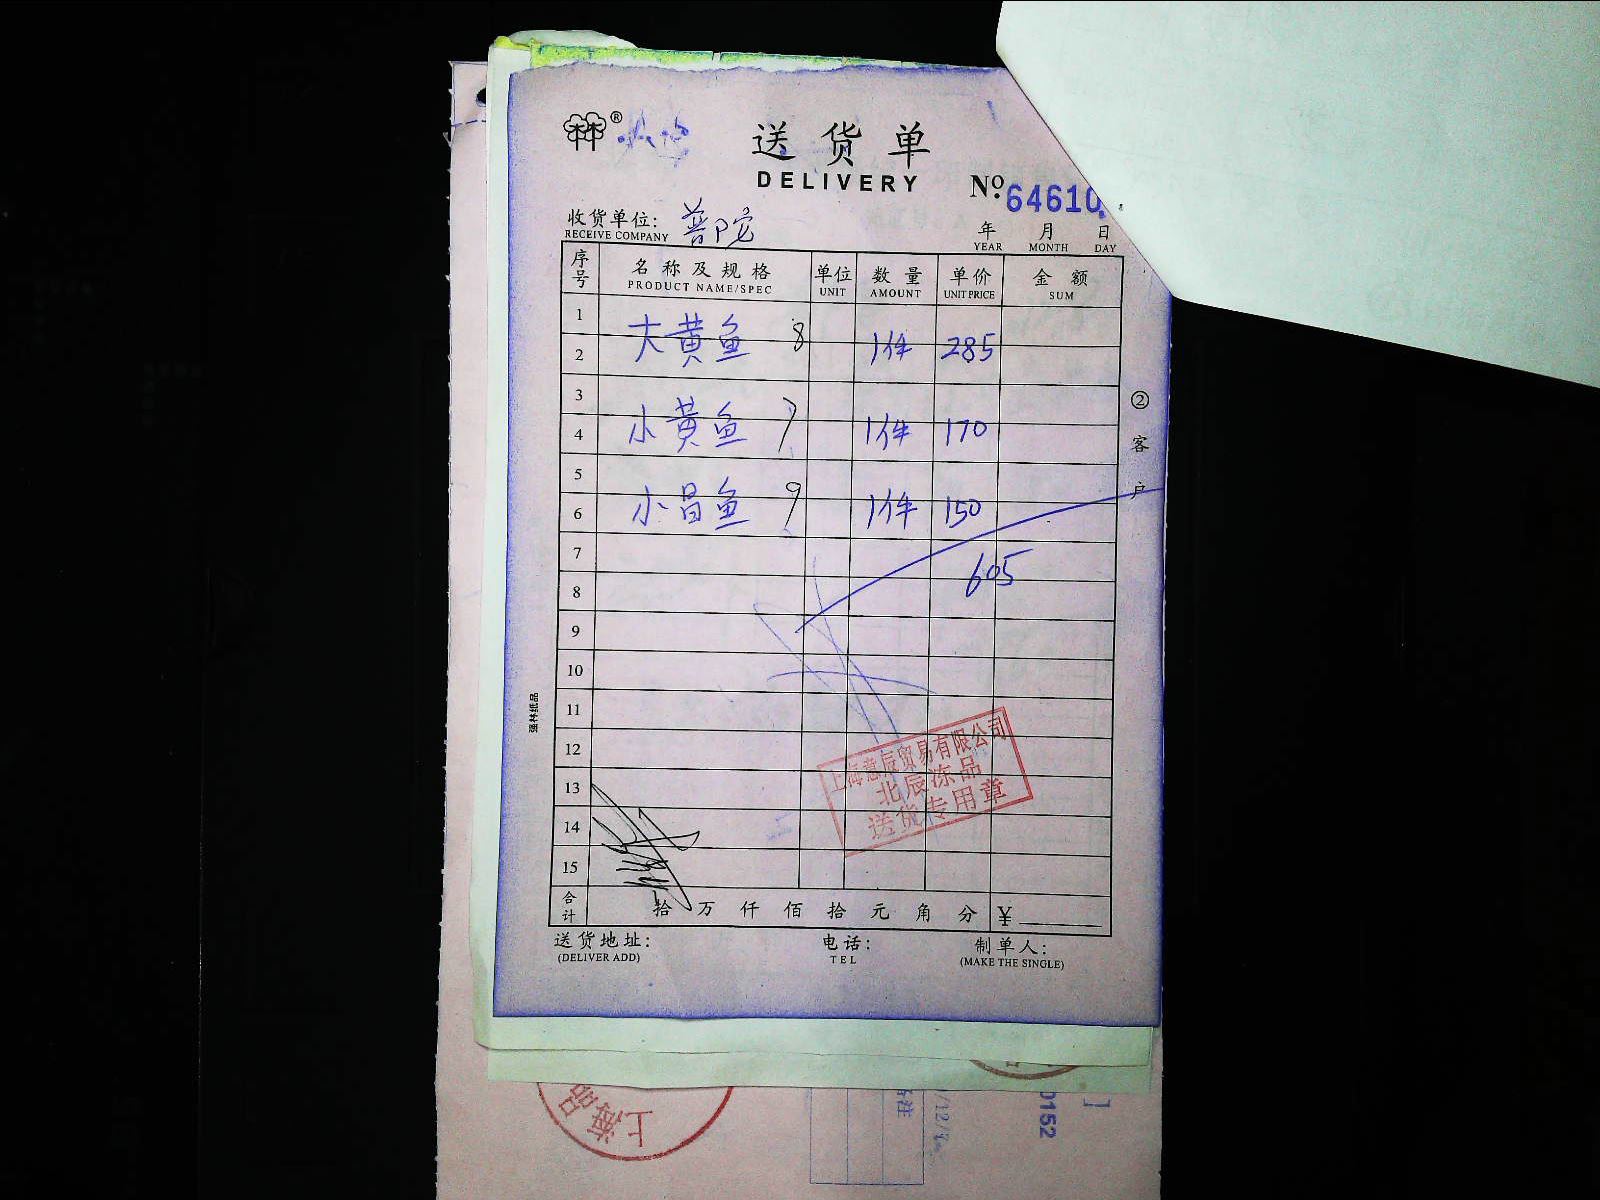 林®
送货单
DELIVERY
No.64610
收货单位: 普陀
RECEIVE COMPANY
年 月 日
YEAR MONTH DAY
序号 名称及规格 单位 数量 单价 金额
PRODUCT NAME/SPEC UNIT AMOUNT UNIT PRICE SUM
1
大黄鱼 8 1件 285
2
3
小黄鱼 7 1件 170
4
5
小昌鱼 9 1件 150
6
7
605
8
9
10
11
12
13
14
15
②客户
强林纸品
上海意辰贸易有限公司
北辰冻品
送货专用章
合计 拾万仟佰拾元角分 ¥
送货地址: 电话: 制单人:
(DELIVER ADD) TEL (MAKE THE SINGLE)
上海
品
备注
0152